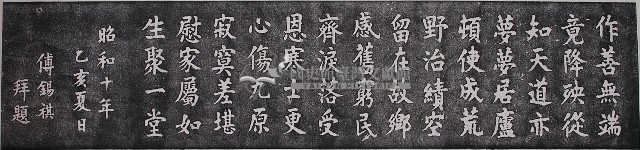 作善無端
竟降殃從
知天道亦
夢夢居廬
頓使成荒
野治績空
留在故鄉
感舊窮民
齊淚落受
恩寒士更
心傷九原
寂寞差堪
慰家屬如
生聚一堂
昭和十年
乙亥夏日
傅錫祺
拜題